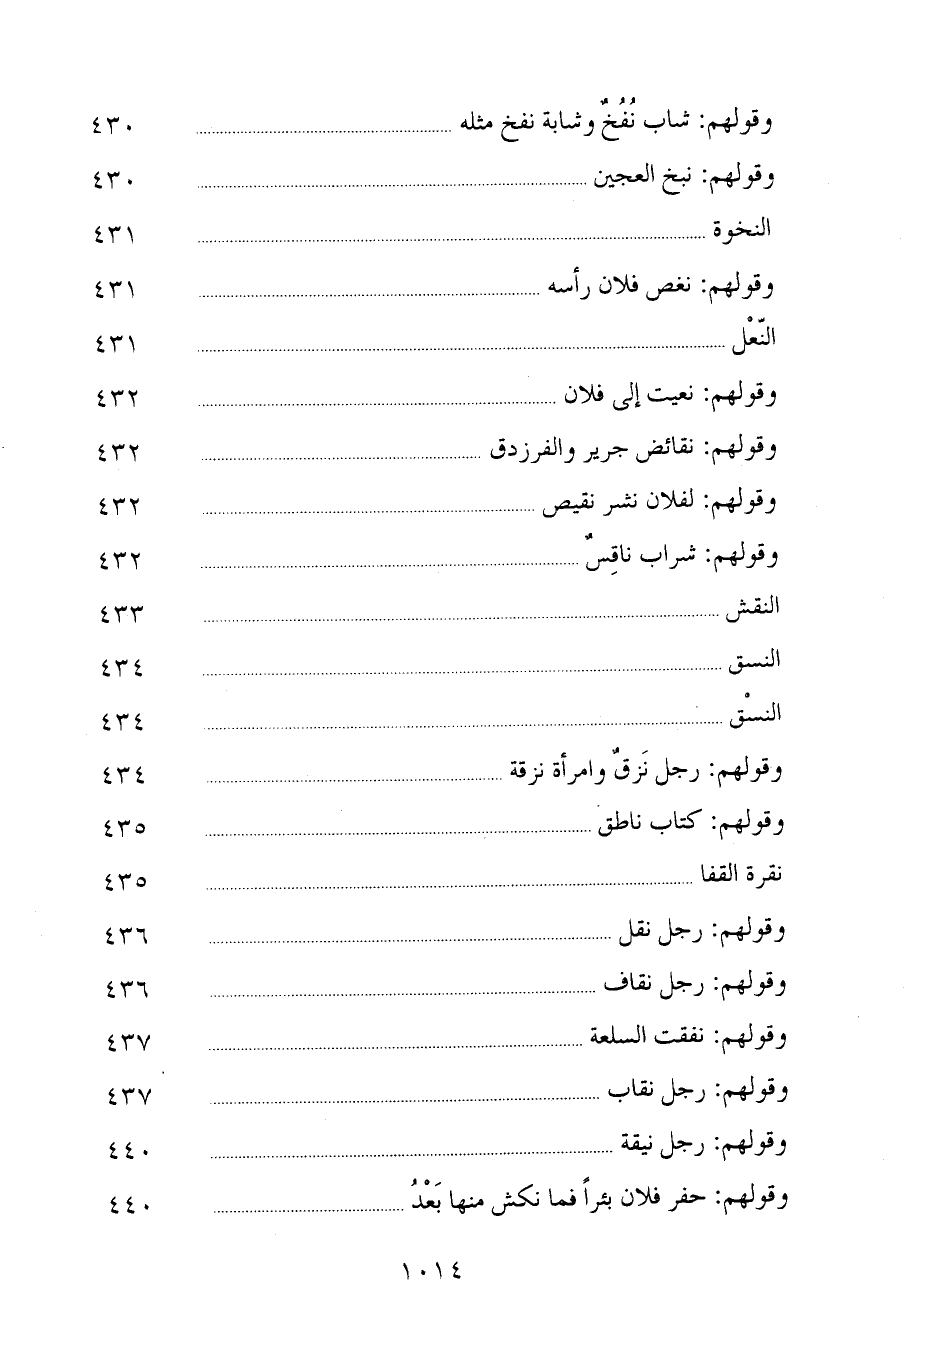 وقولهم: شاب نُفُخٌ وشابة نفخ مثله ٤٣٠
وقولهم: نبخ العجين ٤٣٠
النخوة ٤٣١
وقولهم: نغص فلان رأسه ٤٣١
النّعْل ٤٣١
وقولهم: نعيت إلى فلان ٤٣٢
وقولهم: نقائض جرير والفرزدق ٤٣٢
وقولهم: لفلان نشر نقيص ٤٣٢
وقولهم: شراب ناقِسٌ ٤٣٢
النقش ٤٣٣
النسق ٤٣٤
النسْق ٤٣٤
وقولهم: رجل نَزقٌ وامرأة نزقة ٤٣٤
وقولهم: كتاب ناطق ٤٣٥
نقرة القفا ٤٣٥
وقولهم: رجل نقل ٤٣٦
وقولهم: رجل نقاف ٤٣٦
وقولهم: نفقت السلعة ٤٣٧
وقولهم: رجل نقاب ٤٣٧
وقولهم: رجل نيقة ٤٤٠
وقولهم: حفر فلان بئراً فما نكش منها بَعْدُ ٤٤٠
١٠١٤